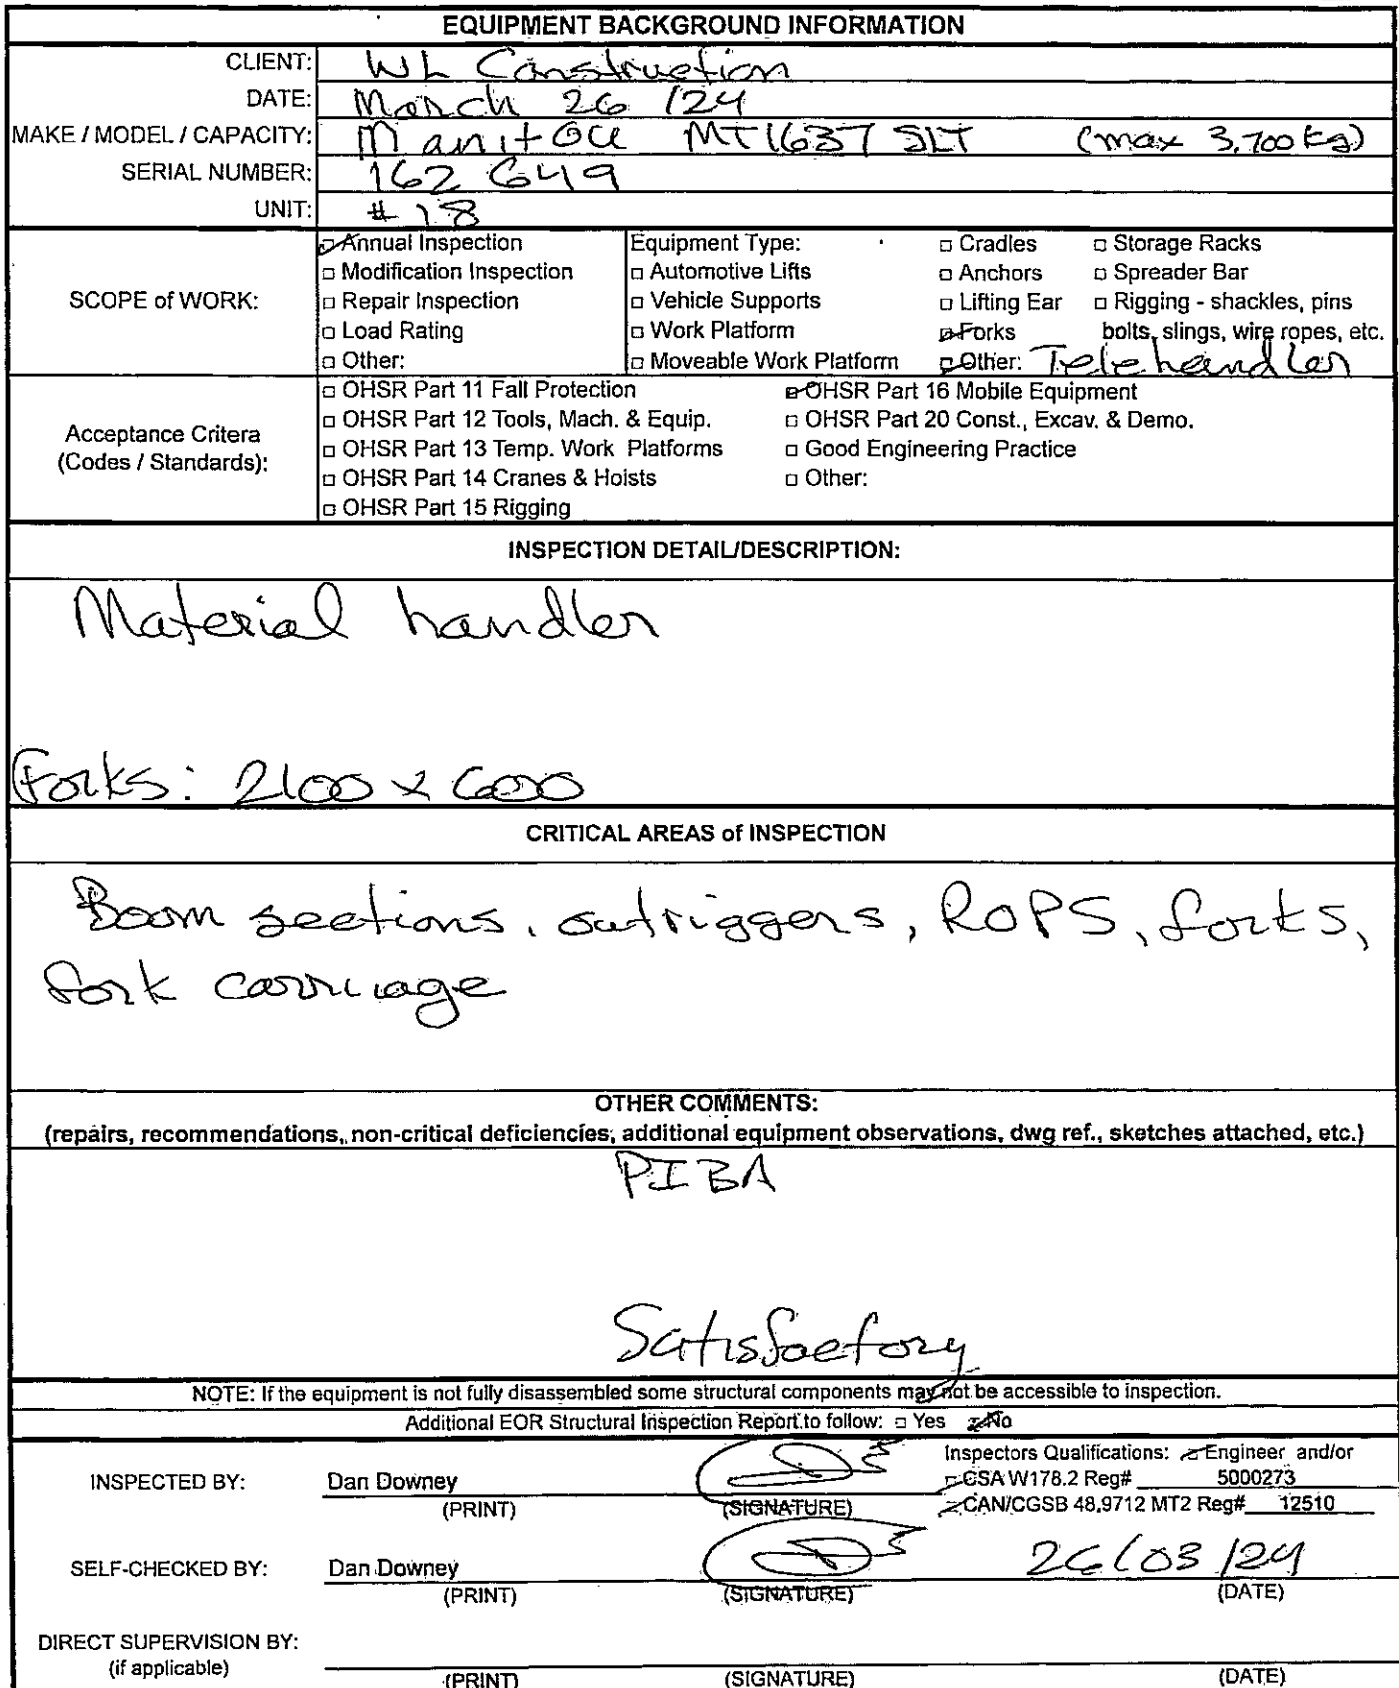 EQUIPMENT BACKGROUND INFORMATION
CLIENT: WL Construction
DATE: March 26 /24
MAKE / MODEL / CAPACITY: Manitou MT1637 SLT (max 3,700 kg)
SERIAL NUMBER: 162 649
UNIT: # 18
SCOPE of WORK:
☑ Annual Inspection
□ Modification Inspection
□ Repair Inspection
□ Load Rating
□ Other:
Equipment Type:
□ Automotive Lifts
□ Vehicle Supports
□ Work Platform
□ Moveable Work Platform
□ Cradles
□ Anchors
□ Lifting Ear
☑ Forks
☑ Other: Telehandler
□ Storage Racks
□ Spreader Bar
□ Rigging - shackles, pins
bolts, slings, wire ropes, etc.
Acceptance Critera
(Codes / Standards):
□ OHSR Part 11 Fall Protection
□ OHSR Part 12 Tools, Mach. & Equip.
□ OHSR Part 13 Temp. Work Platforms
□ OHSR Part 14 Cranes & Hoists
□ OHSR Part 15 Rigging
☑ OHSR Part 16 Mobile Equipment
□ OHSR Part 20 Const., Excav. & Demo.
□ Good Engineering Practice
□ Other:
INSPECTION DETAIL/DESCRIPTION:
Material handler
Forks: 2100 x 600
CRITICAL AREAS of INSPECTION
Boom sections, outriggers, ROPS, forks,
fork carriage
OTHER COMMENTS:
(repairs, recommendations, non-critical deficiencies, additional equipment observations, dwg ref., sketches attached, etc.)
PIBA
Satisfactory
NOTE: If the equipment is not fully disassembled some structural components may not be accessible to inspection.
Additional EOR Structural Inspection Report to follow: □ Yes ☑ No
INSPECTED BY: Dan Downey
(PRINT) (SIGNATURE)
Inspectors Qualifications: ☑ Engineer and/or
☑ CSA W178.2 Reg# 5000273
☑ CAN/CGSB 48.9712 MT2 Reg# 12510
SELF-CHECKED BY: Dan Downey 26/03/24
(PRINT) (SIGNATURE) (DATE)
DIRECT SUPERVISION BY:
(if applicable)
(PRINT) (SIGNATURE) (DATE)